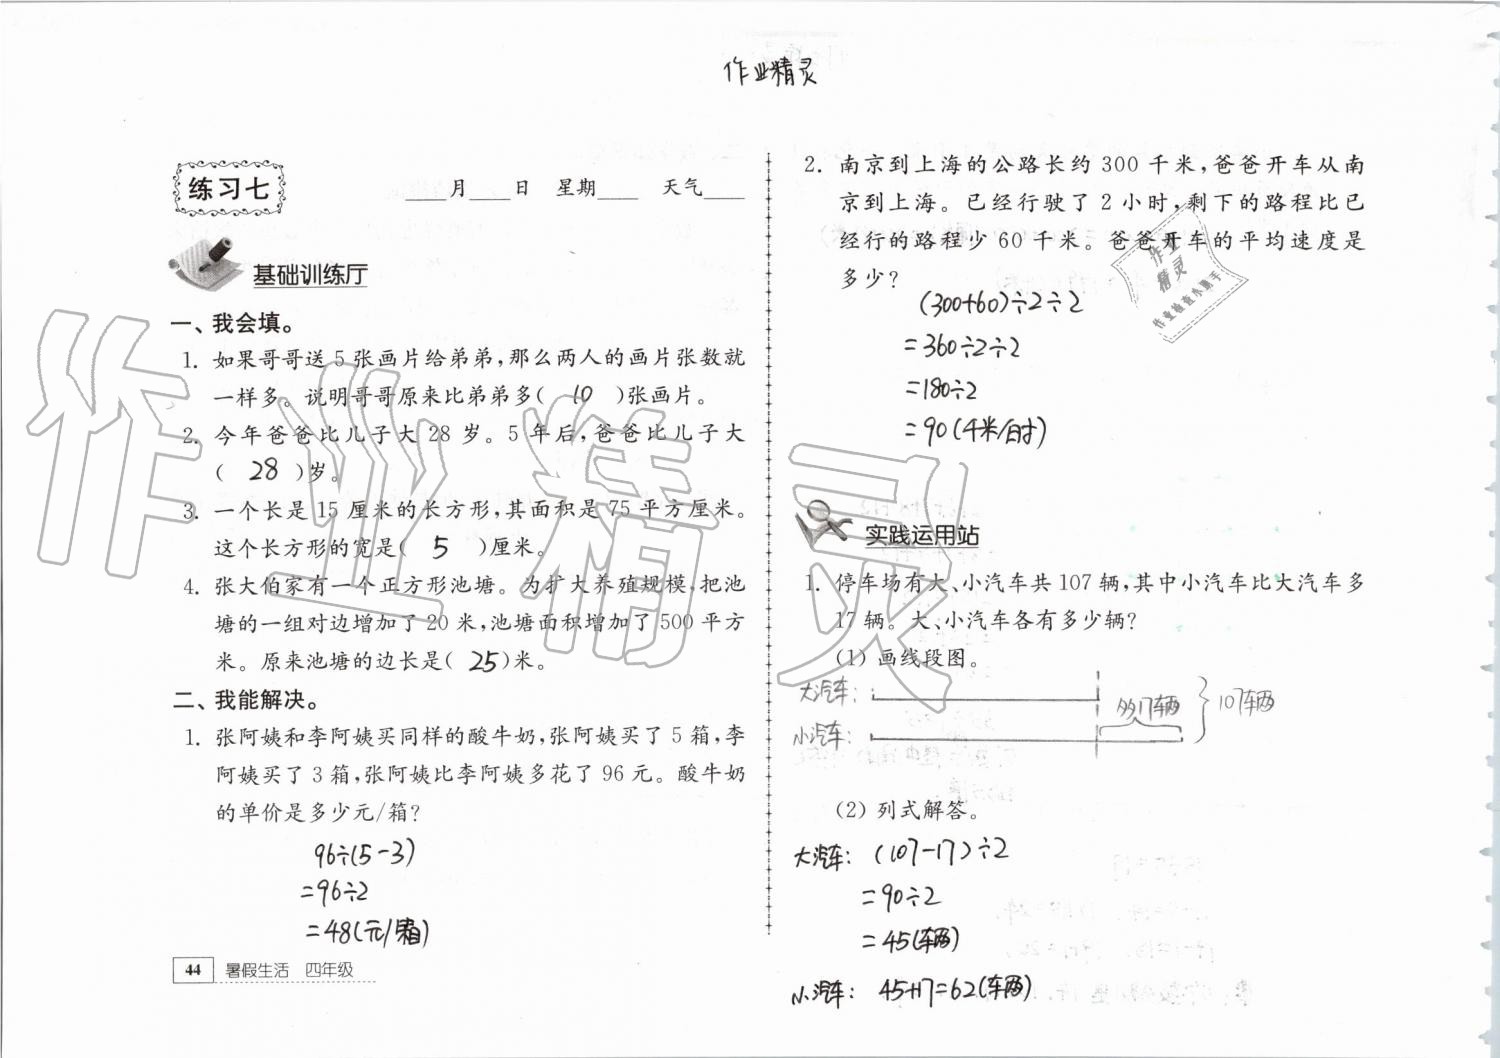 作业精灵
练习七
____月____日 星期____ 天气____
基础训练厅
一、我会填。
1. 如果哥哥送 5 张画片给弟弟,那么两人的画片张数就
一样多。说明哥哥原来比弟弟多( 10 )张画片。
2. 今年爸爸比儿子大 28 岁。5 年后,爸爸比儿子大
( 28 )岁。
3. 一个长是 15 厘米的长方形,其面积是 75 平方厘米。
这个长方形的宽是( 5 )厘米。
4. 张大伯家有一个正方形池塘。为扩大养殖规模,把池
塘的一组对边增加了 20 米,池塘面积增加了 500 平方
米。原来池塘的边长是( 25 )米。
二、我能解决。
1. 张阿姨和李阿姨买同样的酸牛奶,张阿姨买了 5 箱,李
阿姨买了 3 箱,张阿姨比李阿姨多花了 96 元。酸牛奶
的单价是多少元/箱?
96÷(5-3)
=96÷2
=48(元/箱)
44 暑假生活 四年级
2. 南京到上海的公路长约 300 千米,爸爸开车从南
京到上海。已经行驶了 2 小时,剩下的路程比已
经行的路程少 60 千米。爸爸开车的平均速度是
多少?
(300+60)÷2÷2
=360÷2÷2
=180÷2
=90(千米/时)
作业
精灵
作业检查小助手
实践运用站
1. 停车场有大、小汽车共 107 辆,其中小汽车比大汽车多
17 辆。大、小汽车各有多少辆?
(1) 画线段图。
大汽车:
多17辆
107辆
小汽车:
(2) 列式解答。
大汽车: (107-17)÷2
=90÷2
=45(辆)
小汽车: 45+17=62(辆)
作业精灵